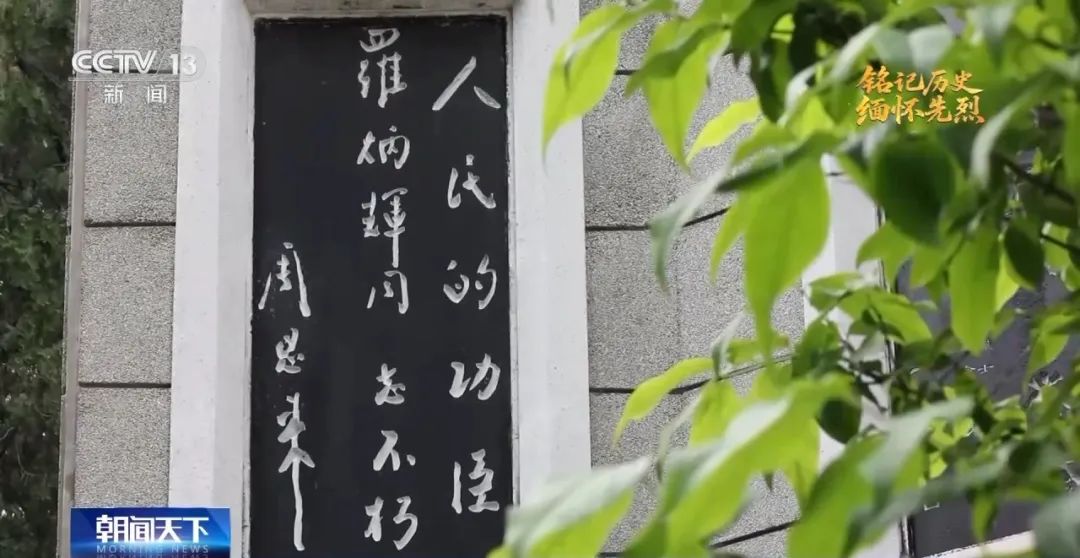 CCTV 13
新闻
铭记历史
缅怀先烈
人民的功臣
羅炳輝同志不朽
周恩来
朝闻天下
MORNING NEWS